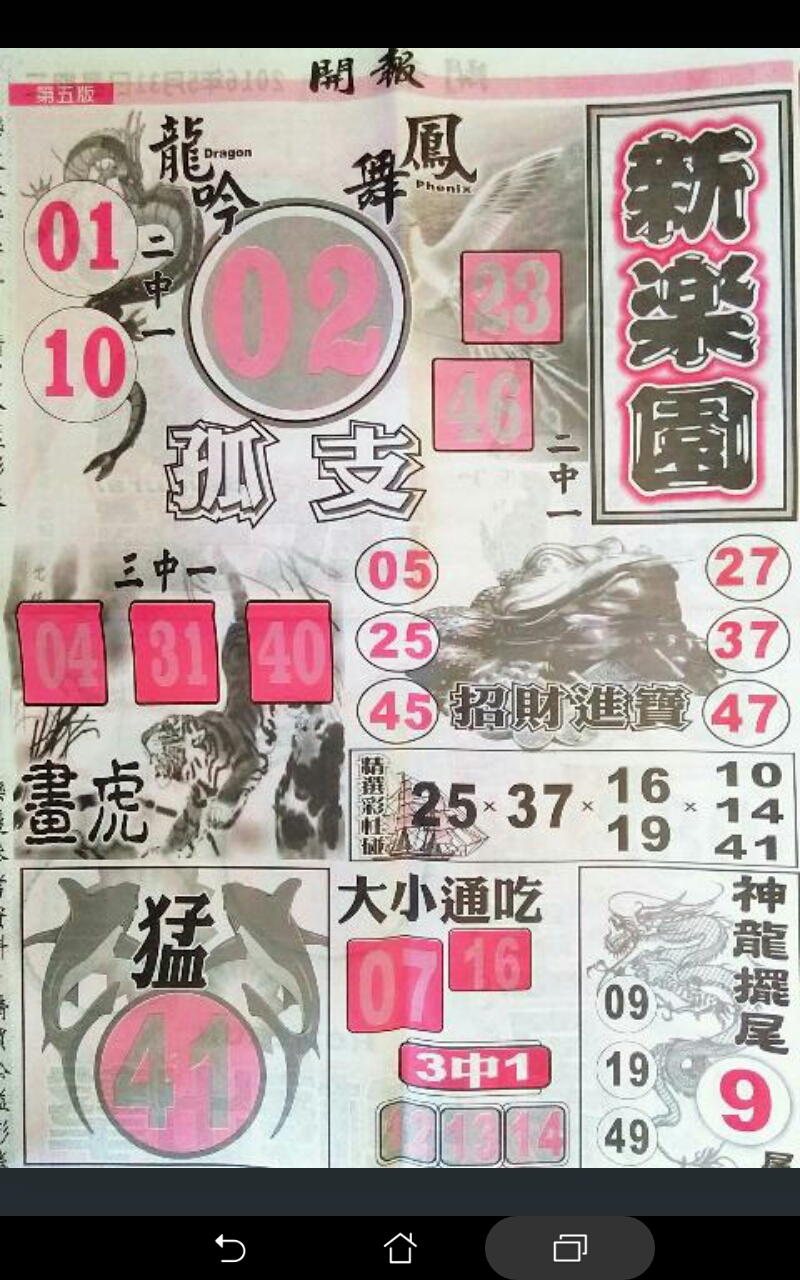 開報
2016年5月31日
第五版
龍吟
Dragon
舞鳳
Phenix
新楽園
01
10
二中一
02
孤支
23
46
二中一
三中一
04 31 40
畫虎
05
25
45
招財進寶
27
37
47
精選彩柱碰
25 × 37 × 16 19 × 10 14 41
猛
41
大小通吃
07 16
3中1
12 13 14
神龍擺尾
09
19
49
9
尾